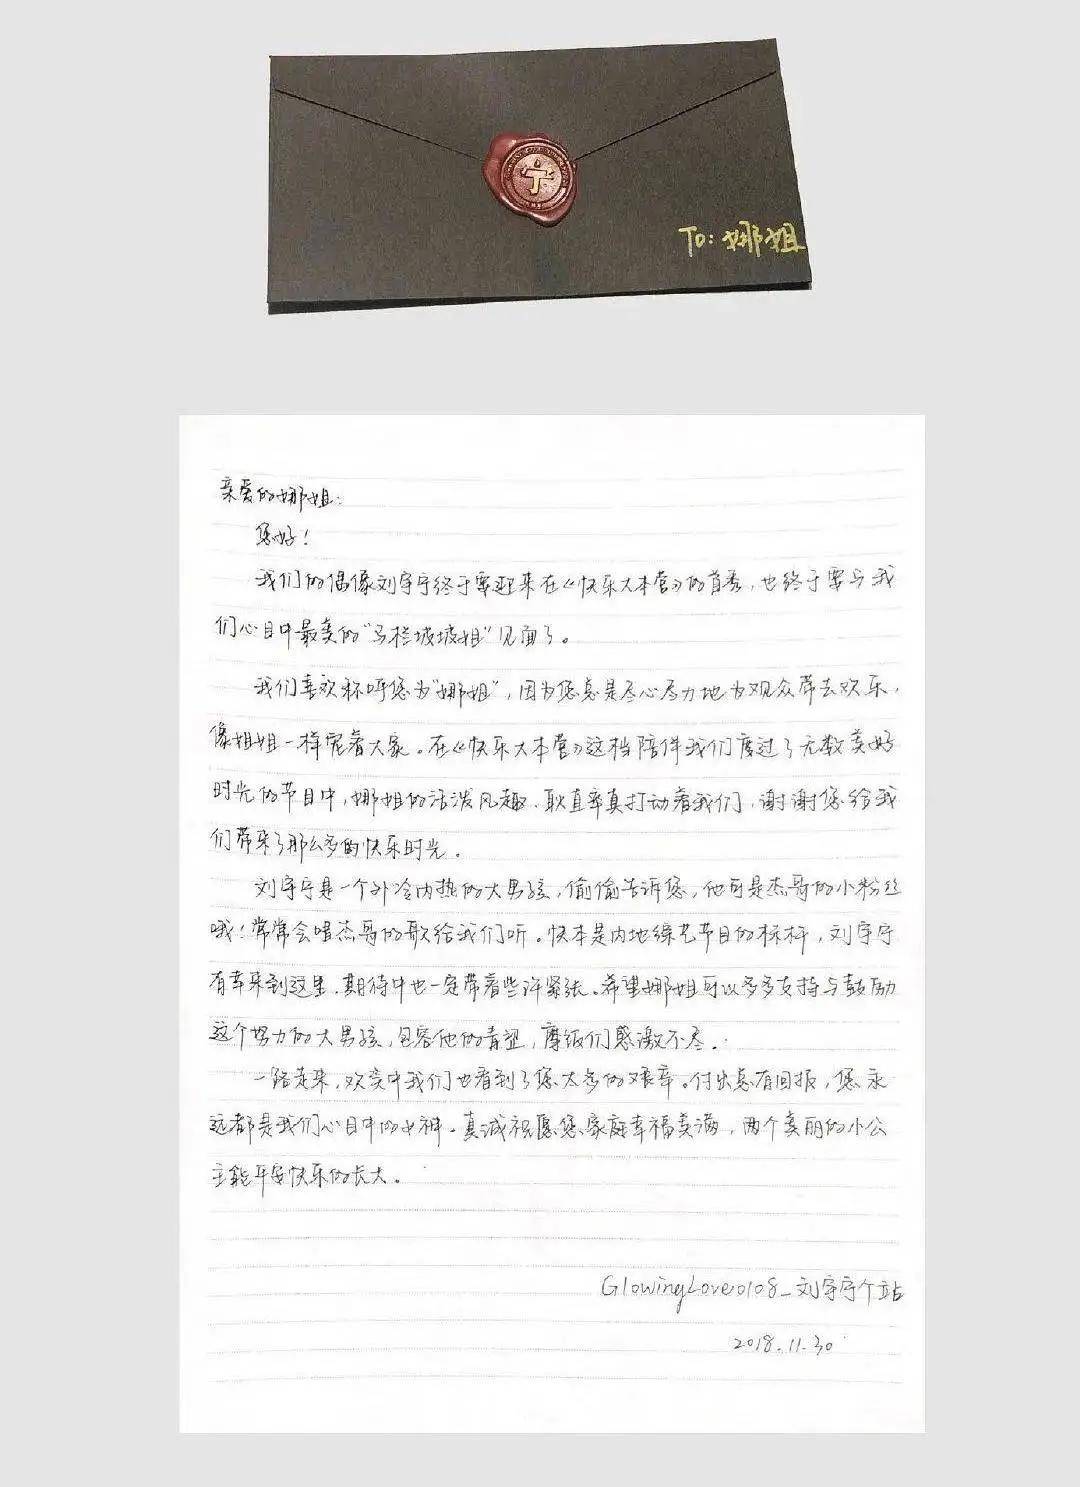 宁
To: 娜姐
亲爱的娜姐:
您好!
我们的偶像刘宇宁终于要迎来在《快乐大本营》的首秀,也终于要与我
们心目中最美的“马栏坡坡姐”见面了。
我们喜欢称呼您为“娜姐”,因为您总是尽心尽力地为观众带去欢乐,
像姐姐一样宠着大家。在《快乐大本营》这档陪伴我们度过了无数美好
时光的节目中,娜姐的活泼风趣、耿直率真打动着我们,谢谢您给我
们带来了那么多的快乐时光。
刘宇宁是一个外冷内热的大男孩,偷偷告诉您,他可是杰哥的小粉丝
哦!常常会唱杰哥的歌给我们听。快本是内地综艺节目的标杆,刘宇宁
有幸来到这里,期待中也一定带着些许紧张。希望娜姐可以多多支持与鼓励
这个努力的大男孩,包容他的青涩,摩饭们感激不尽。
一路走来,欢笑中我们也看到了您太多的艰辛。付出总有回报,您永
远都是我们心目中的女神。真诚祝愿您家庭幸福美满,两个美丽的小公
主能平安快乐的长大。
GlowingLove0108_刘宇宁个站
2018.11.30